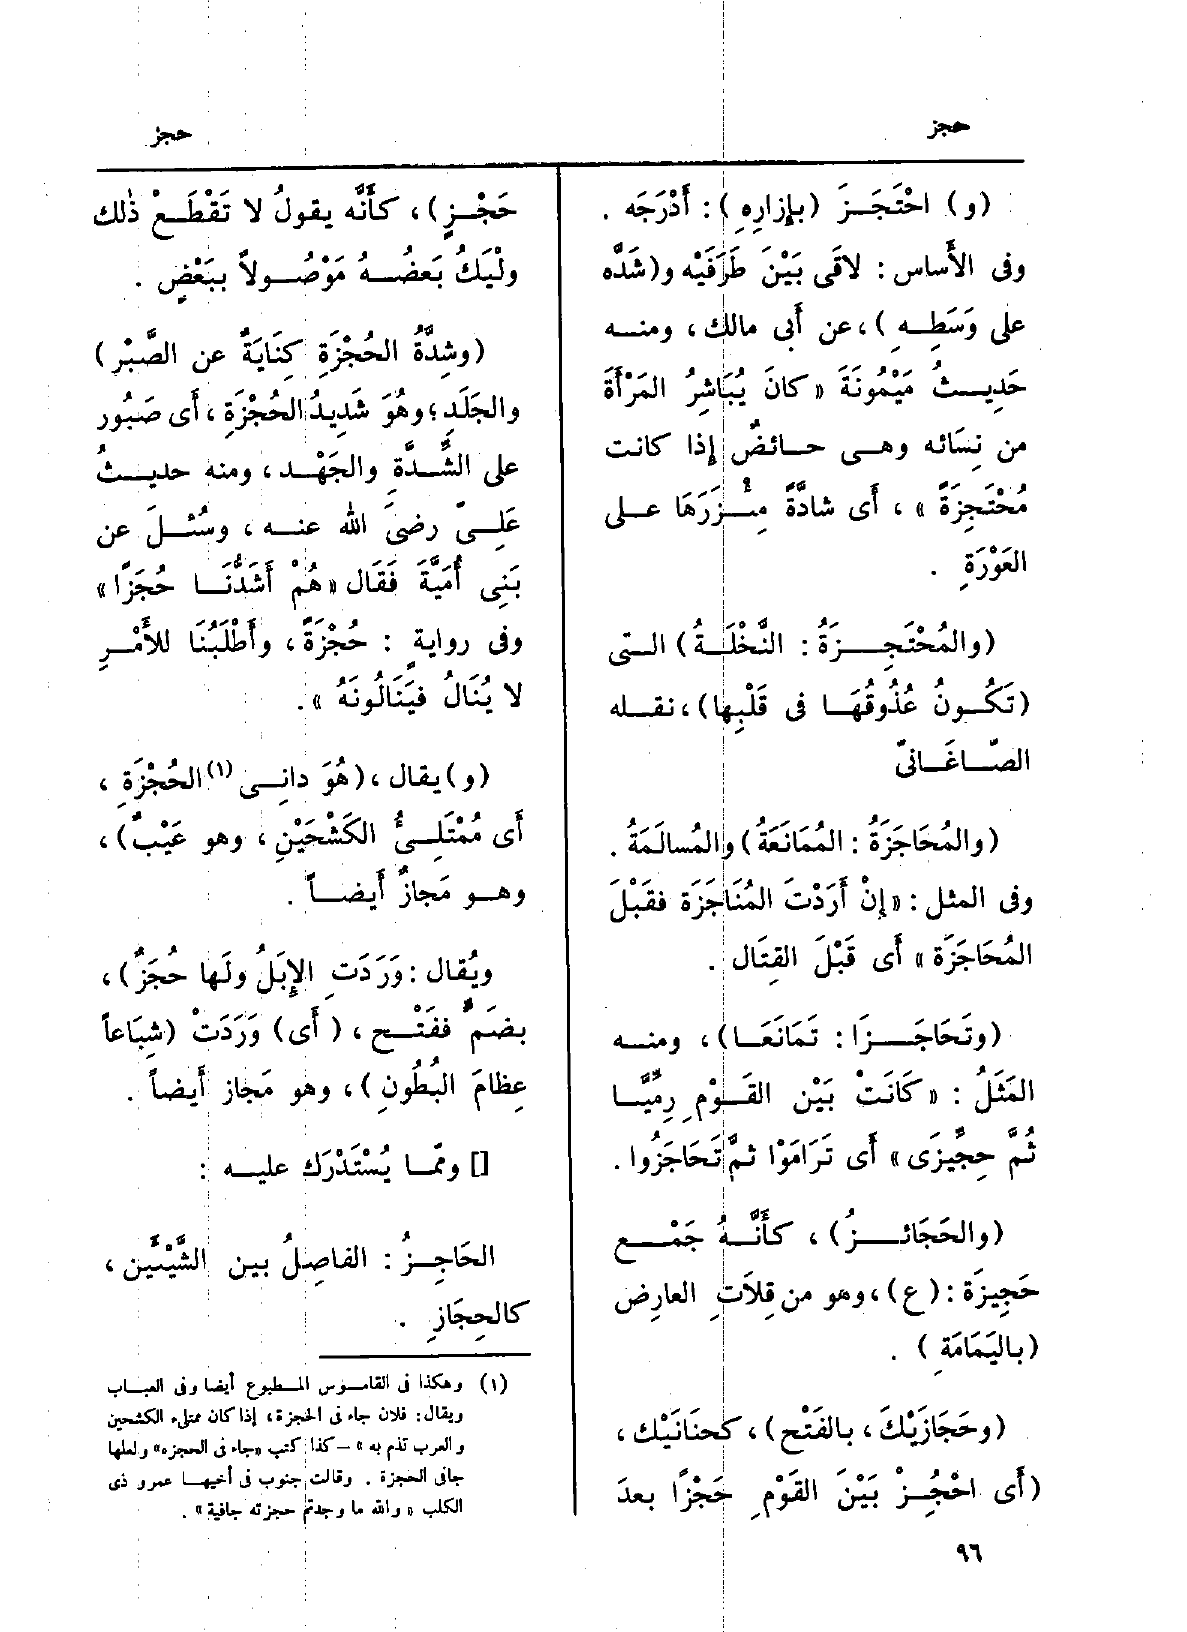 حجز
حجز
(و) احْتَجَزَ (بإزارِهِ): أَدْرَجَه .
وفى الأَساس : لاقَى بَيْنَ طَرَفَيْه و(شَدَّه
على وَسَطِهِ )، عن أَبى مالك ، ومنه
حَدِيثُ مَيْمُونَةَ « كانَ يُبَاشِرُ المَرْأَةَ
من نِسَائه وهى حائضٌ إذا كانت
مُحْتَجِزَةً » ، أَى شادَّةً مِئْزَرَهَا على
العَوْرَةِ .
(والمُحْتَجِزَةُ : النَّخْلَةُ) التى
(تَكُونُ عُذُوقُهَا فى قَلْبِها)، نقله
الصّاغَانىّ
(والمُحَاجَزَةُ : المُمَانَعَةُ) والمُسالَمَةُ .
وفى المثل : «إنْ أَرَدْتَ المُنَاجَزَة فقَبْلَ
المُحَاجَزَة » أَى قَبْلَ القِتَال .
(وتَحَاجَزَا : تَمَانَعَا)، ومنه
المَثَلُ : « كَانَتْ بَيْن القَوْمِ رِمِّيَّا
ثُمَّ حِجِّيزَى » أَى تَرَامَوْا ثمَّ تَحَاجَزُوا .
(والحَجَائزُ) ، كأَنَّهُ جَمْع
حَجِيزَة : (ع) ، وهو من قِلاَتِ العارِض
(باليَمَامَةِ ) .
(وحَجَازَيْكَ ، بالفَتْح) ، كحَنَانَيْك ،
(أَى احْجُزْ بَيْنَ القَوْمِ حَجْزًا بعدَ
حَجْزٍ) ، كأَنَّه يقولُ لا تَقْطَعْ ذٰلك
ولْيَكُ بَعضُهُ مَوْصُولاً ببَعْضٍ .
(وشِدَّةُ الحُجْزَةِ كِنَايَةٌ عن الصَّبْر)
والجَلَدِ ؛ وهُوَ شَدِيدُ الحُجْزَةِ ، أَى صَبُور
على الشَّدَّة والجَهْد ، ومنه حديثُ
عَلِىّ رضىَ الله عنه ، وسُئلَ عن
بَنِى أُمَيَّةَ فَقَال «هُمْ أَشَدُّنَا حُجَزًا»
وفى روايةٍ : حُجْزَةً ، وأَطْلَبُنَا للأَمْرِ
لا يُنَالُ فيَنَالُونَهُ » .
(و) يقال ، (هُوَ دانِى (١) الحُجْزَةِ ،
أَى مُمْتَلِىُّ الكَشْحَيْنِ ، وهو عَيْبٌ) ،
وهو مَجازٌ أَيضاً .
ويُقال : وَرَدَتِ الإبِلُ ولَها حُجَزٌ) ،
بضَمٍّ ففَتْح ، (أَى) وَرَدَتْ (شِبَاعاً
عِظامَ البُطُونِ) ، وهو مَجاز أَيضاً .
[] وممّا يُسْتَدْرَك عليه :
الحَاجِزُ : الفاصِلُ بين الشَّيْئَين ،
كالحِجَازِ .
(١) وهكذا فى القاموس المطبوع أيضا وفى العباب
ويقال : فلان جاء فى الحجزة ، إذا كان ممتلىء الكشحين
والعرب تذم به » – كذا كتب «جاء فى الحجزه» ولعلها
جافى الحجزة . وقالت جنوب فى أخيها عمرو ذى
الكلب « والله ما وجدتم حجزته جافية » .
٩٦